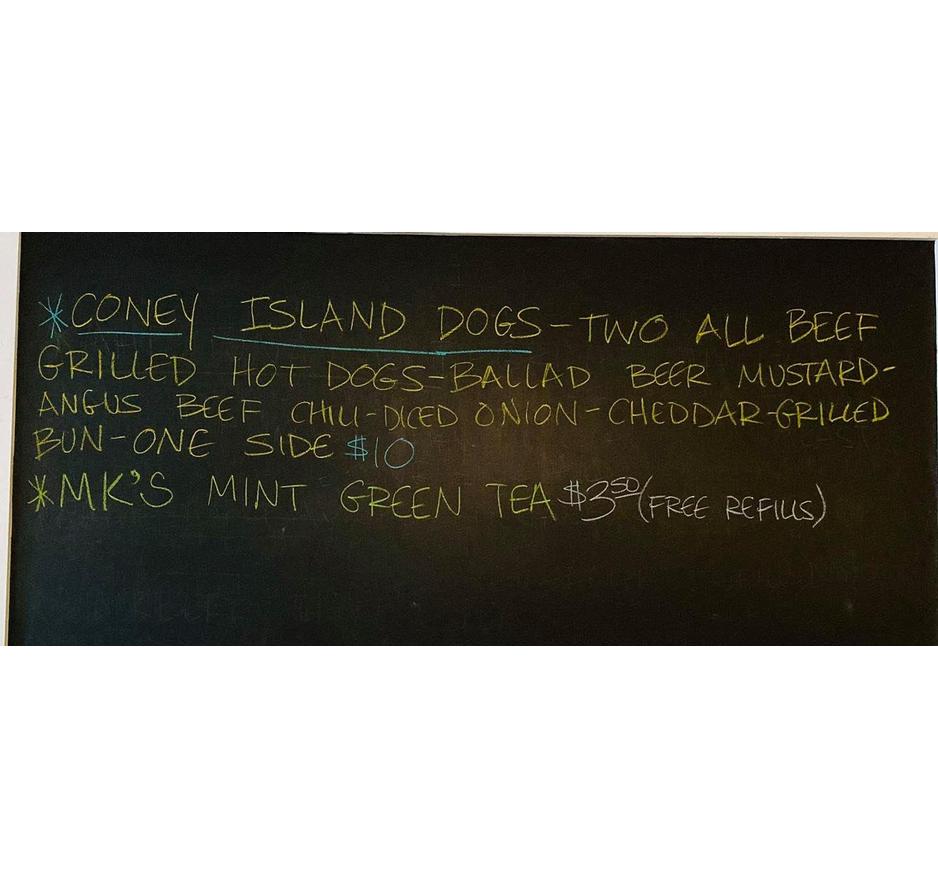 *CONEY ISLAND DOGS-TWO ALL BEEF
GRILLED HOT DOGS-BALLAD BEER MUSTARD-
ANGUS BEEF CHILI-DICED ONION-CHEDDAR-GRILLED
BUN-ONE SIDE $10
*MK'S MINT GREEN TEA $3.50 (FREE REFILLS)